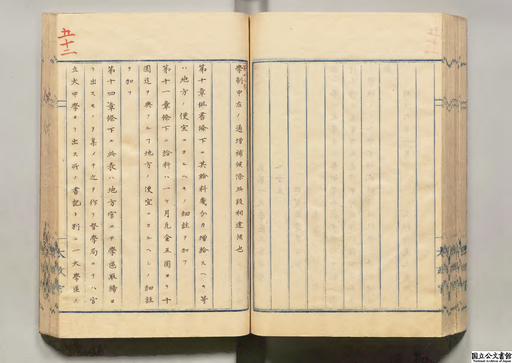 五十二
學制中左ノ通増補候條此段相達候也
第十章但書條下ニ其給料幾分カ増給スヘキ等
ハ地方ノ便宜ニヨルヘキノ細註ヲ加フ
第十一章條下ニ給料ハ一ケ月凡金五圓ヨリ十
圓迄ヲ與フルモ地方ノ便宜ニヨルヘシノ細註
ヲ加フ
第十四章條下ニ終表ハ地方官ニテ學區取締ヨ
リ出スモノヲ集メテ之ヲ作リ督學局ニ
立大中學ヨリ出ス所ノ書記ヲ別ニ一大學區
太政官
国立公文書館
National Archives of Japan